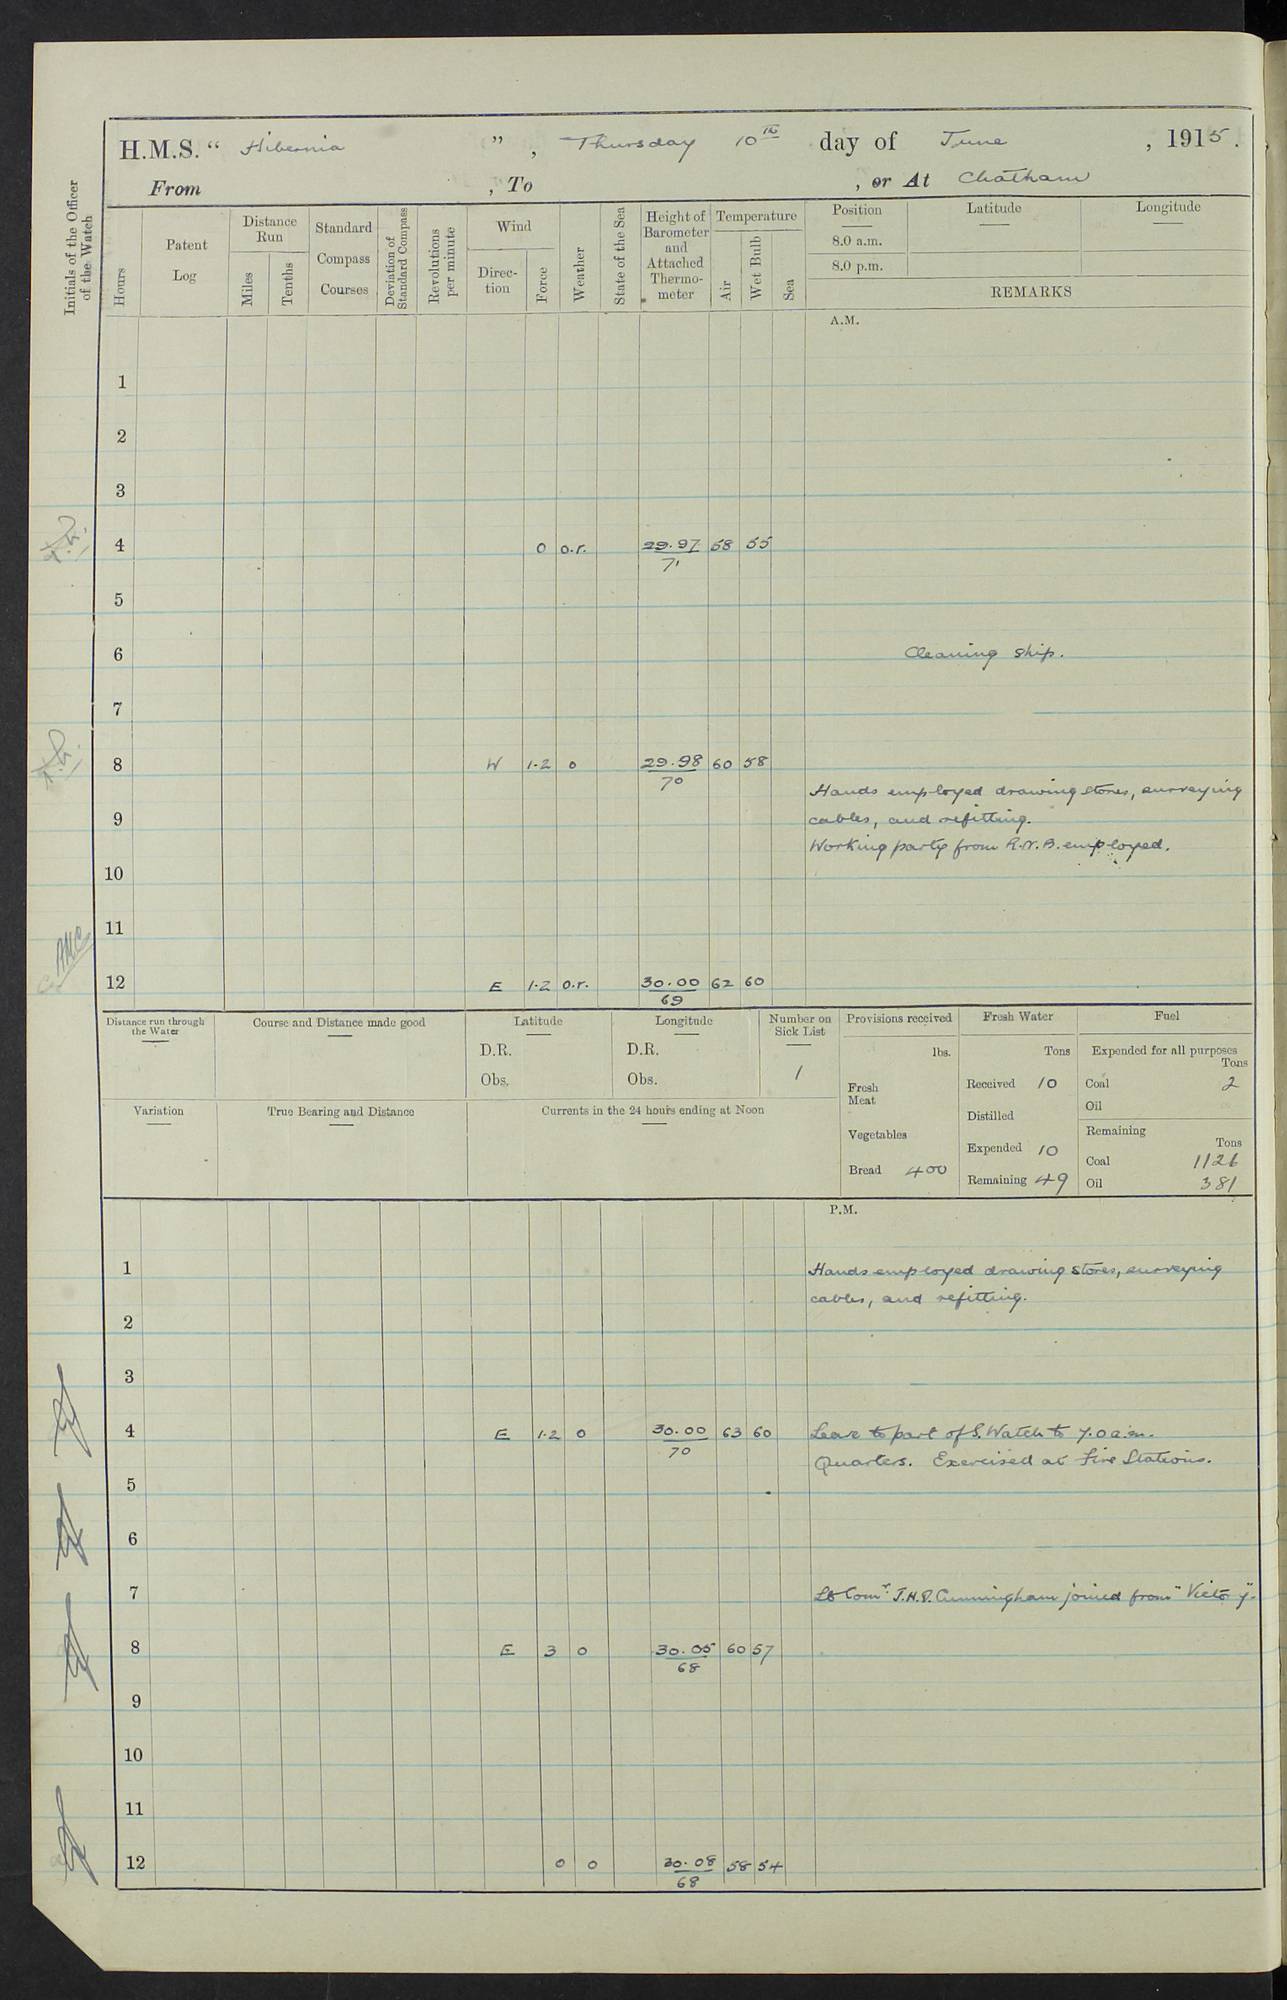 H.M.S. “ Hibernia ” , Thursday 10th day of June , 1915 .
From , To , or At Chatham
Initials of the Officer of the Watch
Hours
Patent Log
Distance Run
Miles
Tenths
Standard Compass Courses
Deviation of Standard Compass
Revolutions per minute
Wind
Direction
Force
Weather
State of the Sea
Height of Barometer and Attached Thermometer
Temperature
Air
Wet Bulb
Sea
Position
Latitude
Longitude
8.0 a.m.
8.0 p.m.
REMARKS
A.M.
1
2
3
4 0 o.r. 29.97 58 55
71
5
6 Cleaning ship.
7
8 W 1.2 o 29.98 60 58
70
Hands employed drawing stores, surveying
9 cables, and refitting.
Working party from R.N.B. employed.
10
11
AMC
12 E 1.2 o.r. 30.00 62 60
69
Distance run through the Water
Course and Distance made good
Latitude
D.R.
Obs.
Longitude
D.R.
Obs.
Number on Sick List
1
Provisions received
lbs.
Fresh Meat
Vegetables
Bread 400
Fresh Water
Tons
Received 10
Distilled
Expended 10
Remaining 49
Fuel
Expended for all purposes
Tons
Coal 2
Oil
Remaining
Tons
Coal 1126
Oil 381
Variation
True Bearing and Distance
Currents in the 24 hours ending at Noon
P.M.
1 Hands employed drawing stores, surveying
cables, and refitting.
2
3
4 E 1.2 o 30.00 63 60 Leave to part of S. Watch to 7.0 a.m.
70 Quarters. Exercised at Fire Stations.
5
6
7 Lt Comr. J.H.D. Cunningham joined from "Victory".
8 E 3 o 30.05 60 57
68
9
10
11
12 0 o 30.08 58 54
68